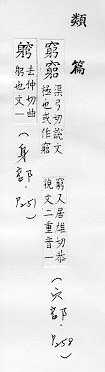 類篇
竆窮
渠弓切說文
極也或作窮
窮又居雄切恭
文二重音一
(穴部.
P.259)
去仲切曲
躬也文一
(身部.
P.251)